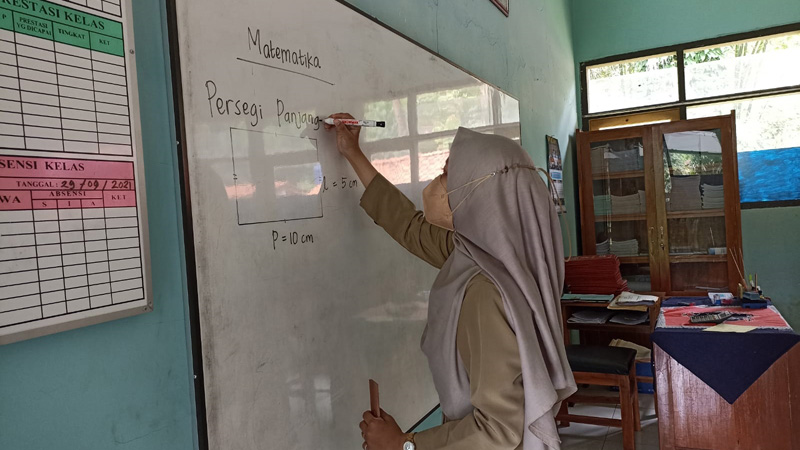 RESTASI KELAS
P
PRESTASI
YG DICAPAI
TINGKAT
KET
SENSI KELAS
TANGGAL : 29 / 09 / 2021
WA
ABSENSI
S
I
A
KET
Matematika
Persegi Panjang
l = 5 cm
P = 10 cm